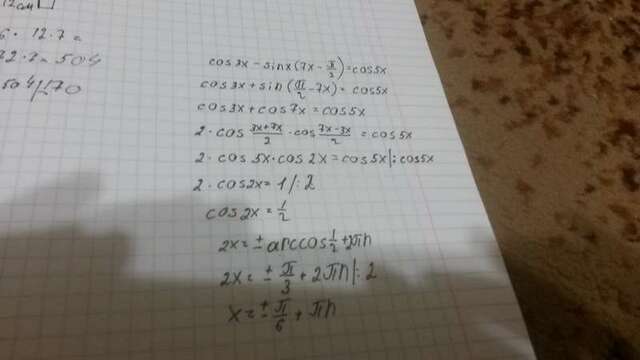 12 см
6 · 12.7 =
22.2 = 504
504/170
cos 3x - sin x (7x - π/2) = cos 5x
cos 3x + sin (π/2 - 7x) = cos 5x
cos 3x + cos 7x = cos 5x
2 · cos (3x+7x)/2 · cos (7x-3x)/2 = cos 5x
2 · cos 5x · cos 2x = cos 5x | : cos 5x
2 · cos 2x = 1 | : 2
cos 2x = 1/2
2x = ± arccos 1/2 + 2πn
2x = ± π/3 + 2πn | : 2
x = ± π/6 + πn